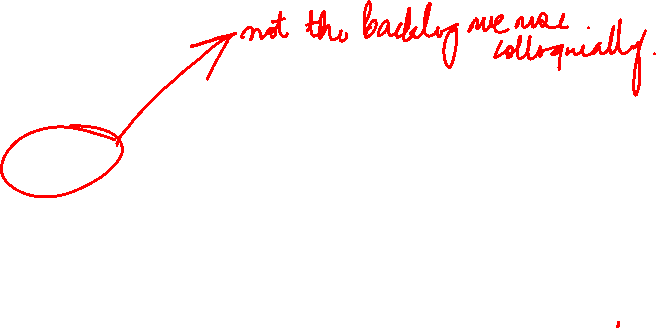 not the backlog we use
colloquially.